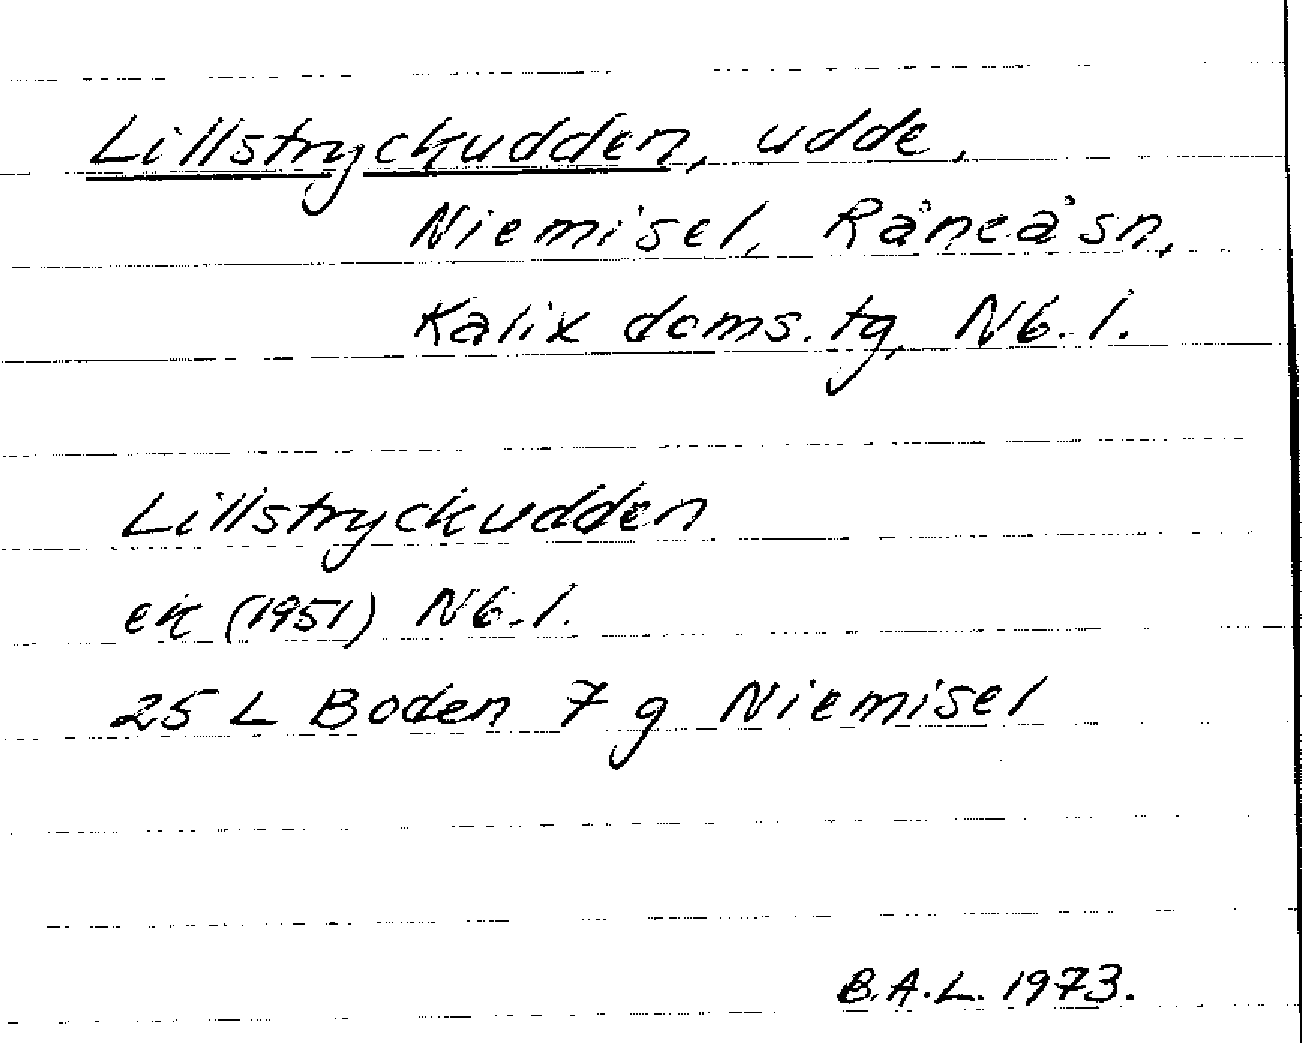 Lillstryckudden, udde,
Niemisel, Råneå sn,
Kalix doms. tg, Nb. l.
Lillstryckudden
ek (1951) Nb. l.
25 L Boden 7 g Niemisel
B.A.L. 1973.